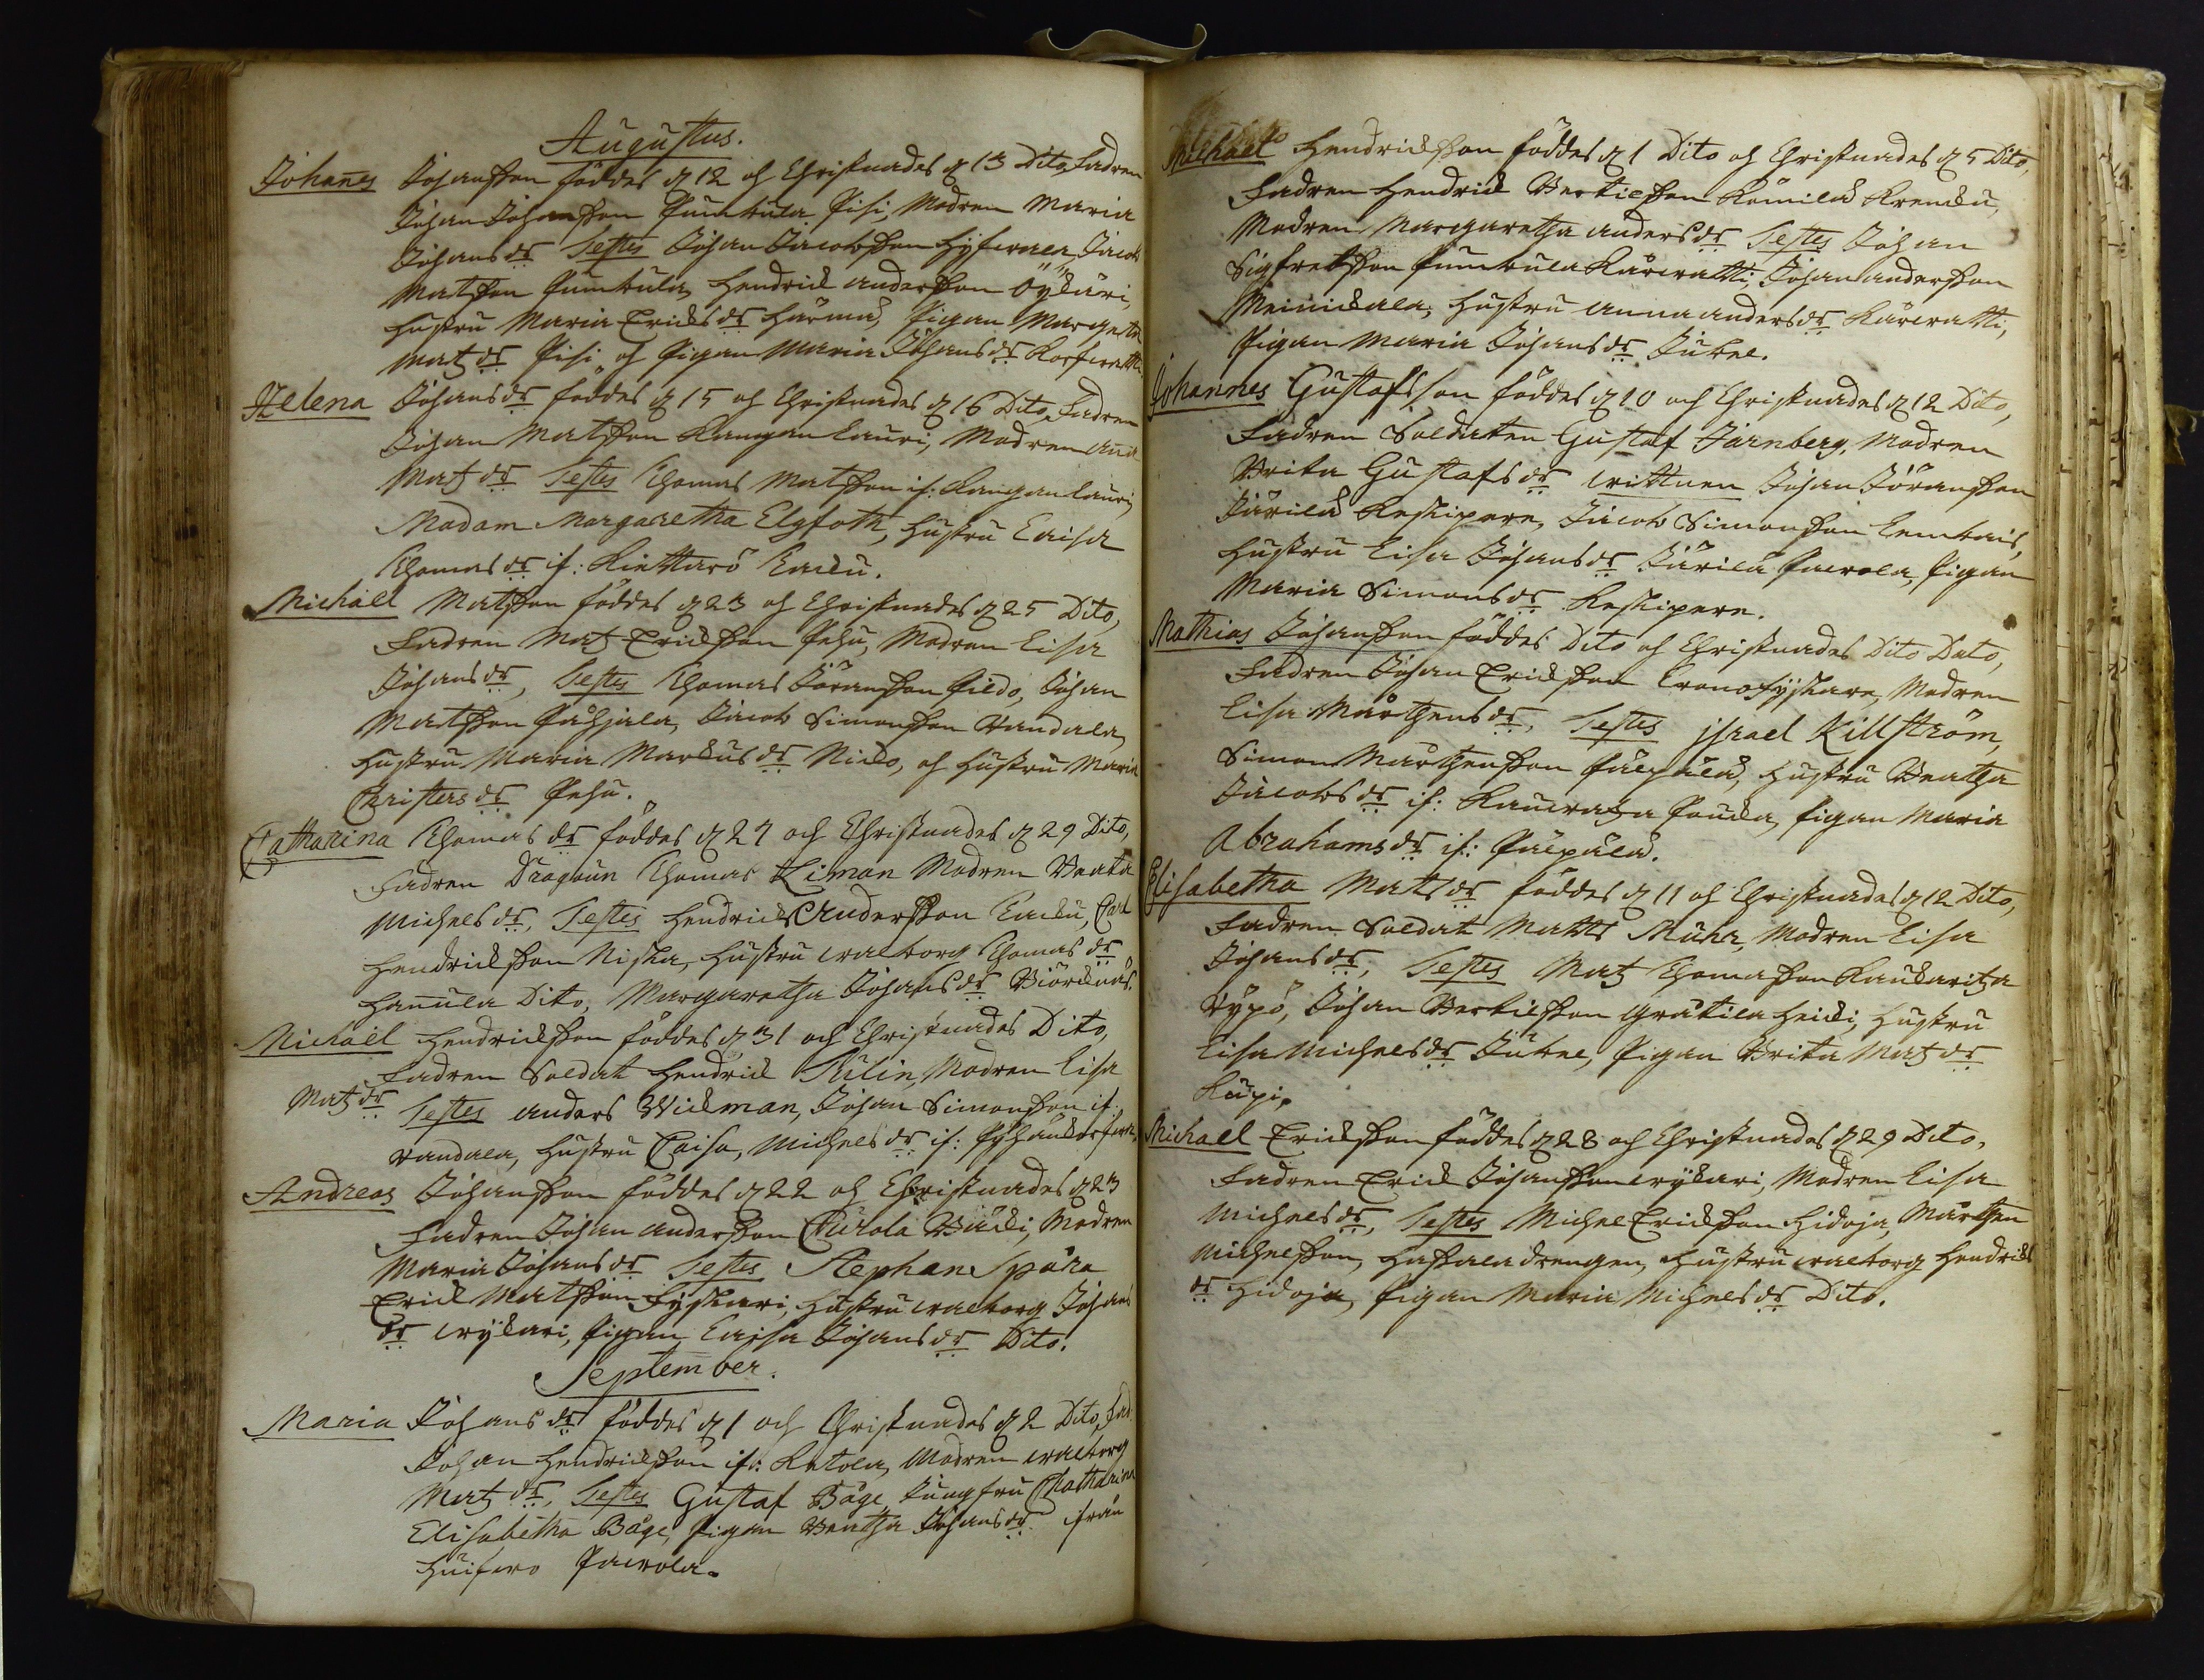 Augustus.
Johanes Johansson föddes d 12 och Christnades d 13 Dito, Fadren
Johan Johansson Pumbula Pisi, Modren Maria
Johans dr Testes Johan Jacobsson Hyfwner, Jacob
Matsson Pumbula, Hendrick andersson Öykäri,
Hustru Maria Ericks dr Härmä, Pigan Margeta
Matz dr Pisi, och Pigan Maria Johans dr
Helena Johans dr foddes d 15 och Christnades d 16 Dito, Fadren
Johan Matsson Kangan Lauri, Modren Anna
Matz dr Testes Thomas Matsson if: Kangan Lauri,
Madam Margaretha Elgfoth, Hustru Caisa
Thomas dr if: Kiettarö
Michaël Matsson föddes d 23 och Christnades d 25 Dito,
Fadren Matz Ericksson Pesu, Modren Lisa
Johans dr, Testes Thomas Jöransson Piclo, Johan
Matsson Påhjala, Jacob Simonsson Vandala,
Hustru Maria Markus dr Niclo, och Hustru Maria
Christers dr Pesu.
Catharina Thomas dr föddes d 27 och Christnades d 29 Dito,
Fadren Dragoun Thomas Liman Modren Beata
Michels dr, Testes Hendrick Andersson Carl
Hendricksson Niska, Hustru Walborg Thomas dr
Hanula Dito, Margaretha Johans dr Biörcknäs.
Michaël Hendricksson föddes d 31 och Christnades Dito,
Fadren Soldat Hendrick Silin, Modren Lisa
Matz dr Testes anders Wickman, Johan Simonsson if:
Vandala, Hustru Caisa, Michels dr if:
Andreas Johansson föddes d 22 och Christnades d 23
Fadren Johan andersson Cärola Bäcki, Modren
Maria Johans dr Testes Stephan Spåra
Erick Matsson Fyskari, Hustru Walborg Johans
dr Wykari, Pigan Caisa Johans dr Dito.
September.
Maria Johans dr föddes d 1 och Christnades d 2 Dito, Fad.
Johan Hendricksson if: Ketola, Modren Walborg
Matz dr, Testes Gustaf Båge, Jungfru Chatharina
Elisabetha Båge, Pigan Beatha Johans dr ifrån
Huifaro Pawola.
Michaël Hendricksson föddes d 1 Dito och Christnades d 5 Dito,
Fadren Hendrick Bertilsson Kämilä Krencku,
Modren Margaretha anders dr Testes Johan
Sigfretsson Pumbula Kärwatti, Johan andersson
Meinickala, Hustru anna anders dr Kärwatti,
Pigan Maria Johans dr Jubel.
Johannes Gustafsson föddes d 10 och Christnades d 12 Dito,
Fadren Soldaten Gustaf Järnberg, Modren
Brita Gustafs dr Wittnen Johan Jöransson
Järilä Keskipere, Jacob Simonsson Lembois,
Hustru Lisa Johans dr Järilä Pawola, Pigan
Maria Simons dr Keskipere.
Mathias Johansson föddes Dito och Christnades Dito Dato,
Fadren Johan Ericksson Cronofyskare, Modren
Lisa Mårthens dr, Testes jsrael Killström,
Simon Mårthensson Pälpälä, Hustru Beatha
Jacobs dr if: Pigan Maria
Abrahams dr if: Pälpälä.
Elisabetha Matts dr föddes d 11 och Christnades d 12 Dito,
Fadren Soldat Matts Muhr, Modren Lisa
Johans dr, Testes Matz Thomasson Kaukaritza
Rypö, Johan Bertilsson Grätila Heicki, Hustru
Lisa Michels dr Jubel, Pigan Brita Matz dr
Kupi.
Michael Ericksson föddes d 28 och Christnades d 29 Dito,
Fadren Erick Johansson Wykari, Modren Lisa
Michels dr, Testes Michel Ericksson Hidoja, Mårthen
Michelsson, Hassala drengen, Hustru Walborg Hendricks
dr Hidoja, Pigan Maria Michels dr Dito.